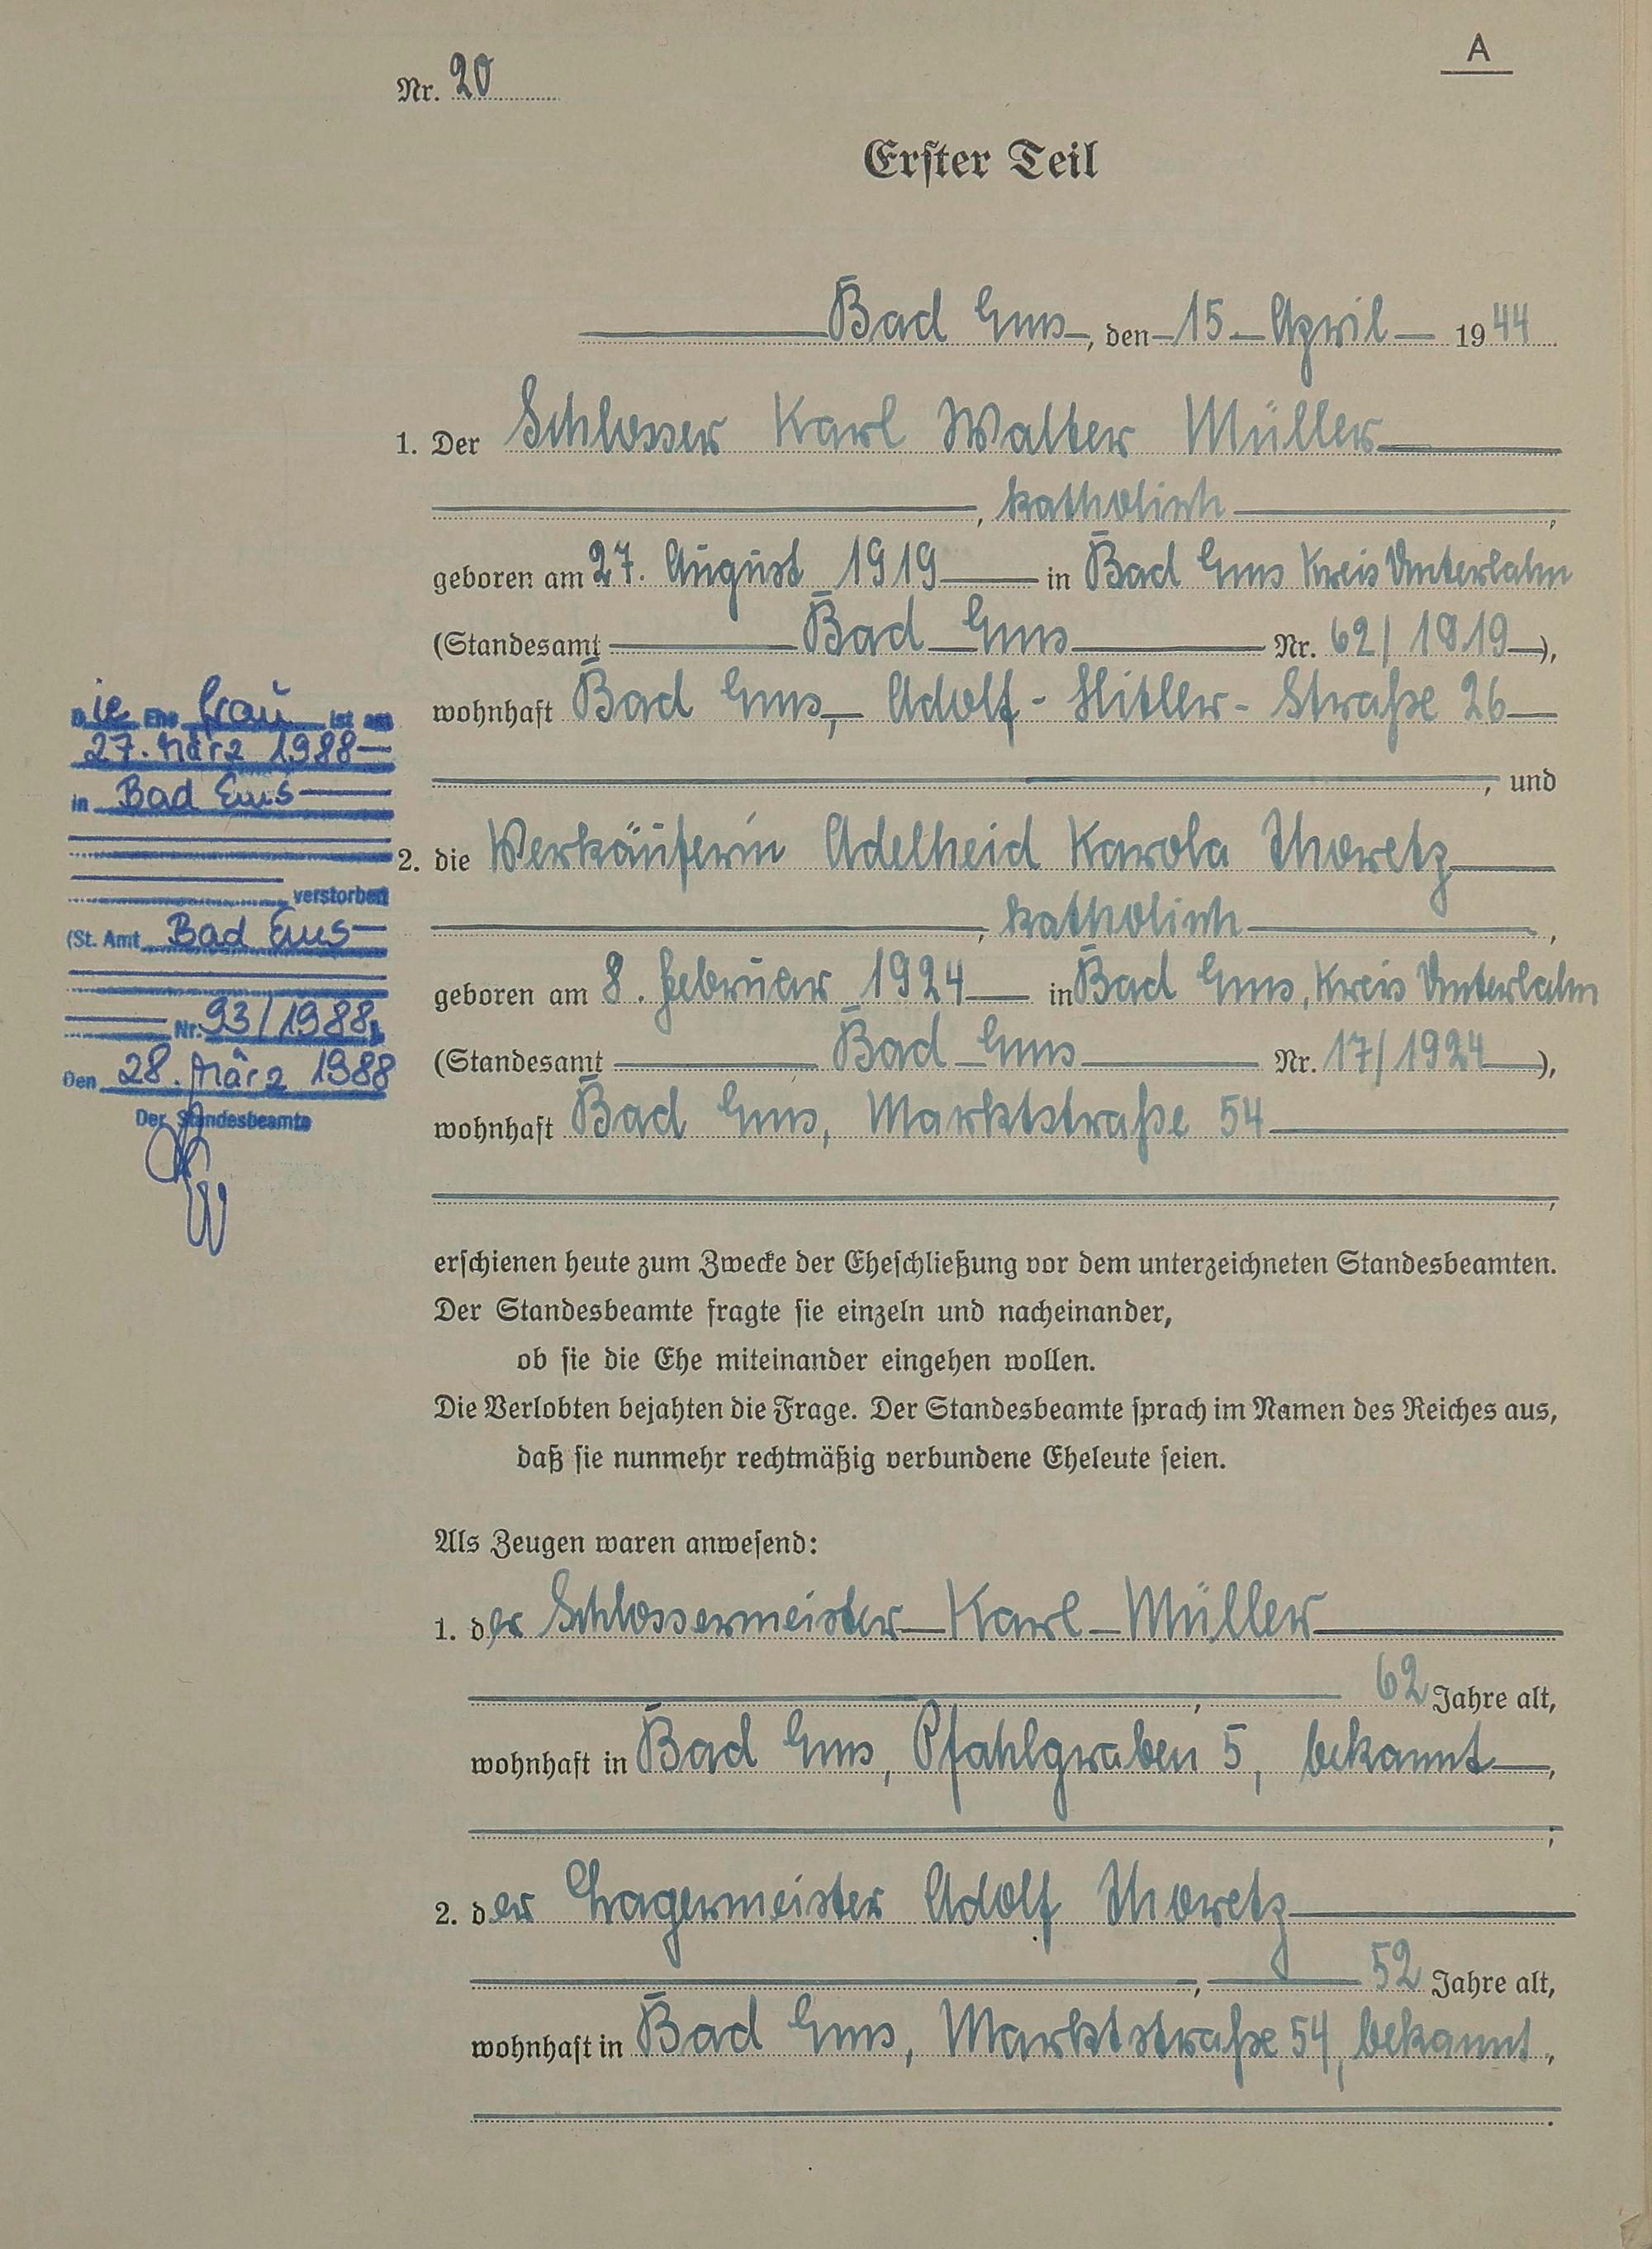 A
Nr. 20
Erster Teil
Bad Ems, den 15. April 1944
1. Der Schlosser Karl Walter Müller
, katholisch,
geboren am 27. August 1919 in Bad Ems Kreis Unterlahn
(Standesamt Bad Ems Nr. 62/1919),
wohnhaft Bad Ems, Adolf-Hitler-Straße 26
, und
2. die Verkäuferin Adelheid Karola Thoretz
, katholisch,
geboren am 8. Februar 1924 in Bad Ems, Kreis Unterlahn
(Standesamt Bad Ems Nr. 17/1924),
wohnhaft Bad Ems, Marktstraße 54
,
erschienen heute zum Zwecke der Eheschließung vor dem unterzeichneten Standesbeamten.
Der Standesbeamte fragte sie einzeln und nacheinander,
ob sie die Ehe miteinander eingehen wollen.
Die Verlobten bejahten die Frage. Der Standesbeamte sprach im Namen des Reiches aus,
daß sie nunmehr rechtmäßig verbundene Eheleute seien.
Als Zeugen waren anwesend:
1. der Schlossermeister Karl Müller
, 62 Jahre alt,
wohnhaft in Bad Ems, Pfahlgraben 5, bekannt,
;
2. der Lagermeister Adolf Thoretz
, 52 Jahre alt,
wohnhaft in Bad Ems, Marktstraße 54, bekannt,
.
Die Ehefrau ist am
27. März 1988
in Bad Ems
verstorben
(St. Amt Bad Ems
Nr. 93/1988)
Den 28. März 1988
Der Standesbeamte